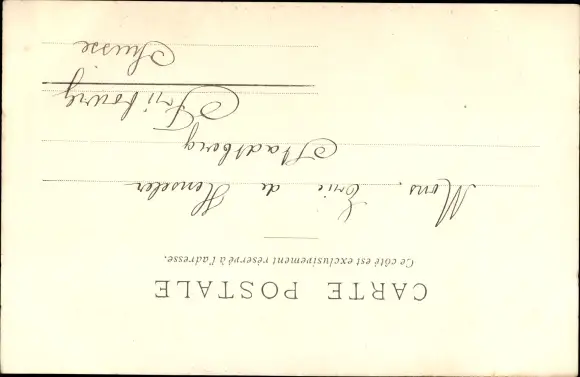 CARTE POSTALE
Ce côté est exclusivement réservé à l'adresse.
Mons. Eric de Henseler
Stadtberg
Fribourg
Suisse